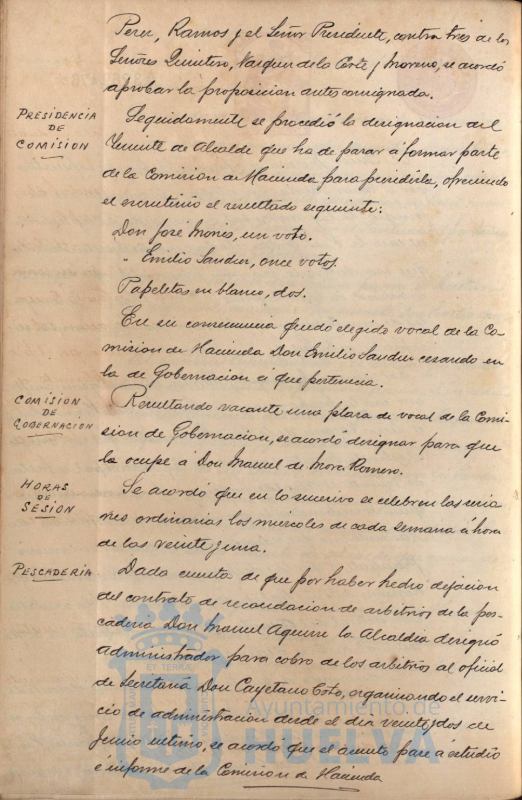 Perez, Ramos y el Señor Presidente, contra tres de los
Señores Quintero, Vazquez de la Corte y Moreno, se acordó
aprobar la proposicion antes consignada.
PRESIDENCIA
DE
COMISION
Seguidamente se procedió la designacion del
Teniente de Alcalde que ha de pasar á formar parte
de la Comision de Hacienda para presidirla, ofreciendo
el escrutinio el resultado siguiente:
Don José Mones, un voto.
" Emilio Sander, once votos.
Papeletas en blanco, dos.
En su consecuencia quedó elegido vocal de la Co-
mision de Hacienda Don Emilio Sander cesando en
la de Gobernacion á que pertenecia.
COMISION
DE
GOBERNACION
Resultando vacante una plaza de vocal de la Comi-
sion de Gobernacion, se acordó designar para que
la ocupe á Don Manuel de Mora Romero.
HORAS
DE
SESION
Se acordó que en lo sucesivo se celebren las sesio
nes ordinarias los miercoles de cada semana á hora
de las veinte y una.
PESCADERIA
Dada cuenta de que por haber hecho dejacion
del contrato de recaudacion de arbitrios de la pes-
caderia Don Manuel Aguirre la Alcaldia designó
Administrador para cobro de los arbitrios al oficial
de Secretaria Don Cayetano Coto, organizando el servi-
cio de administracion desde el dia veinte y dos de
Junio ultimo, se acordó que el asunto pase a estudio
é informe de la Comision de Hacienda
Ayuntamiento de
HUELVA